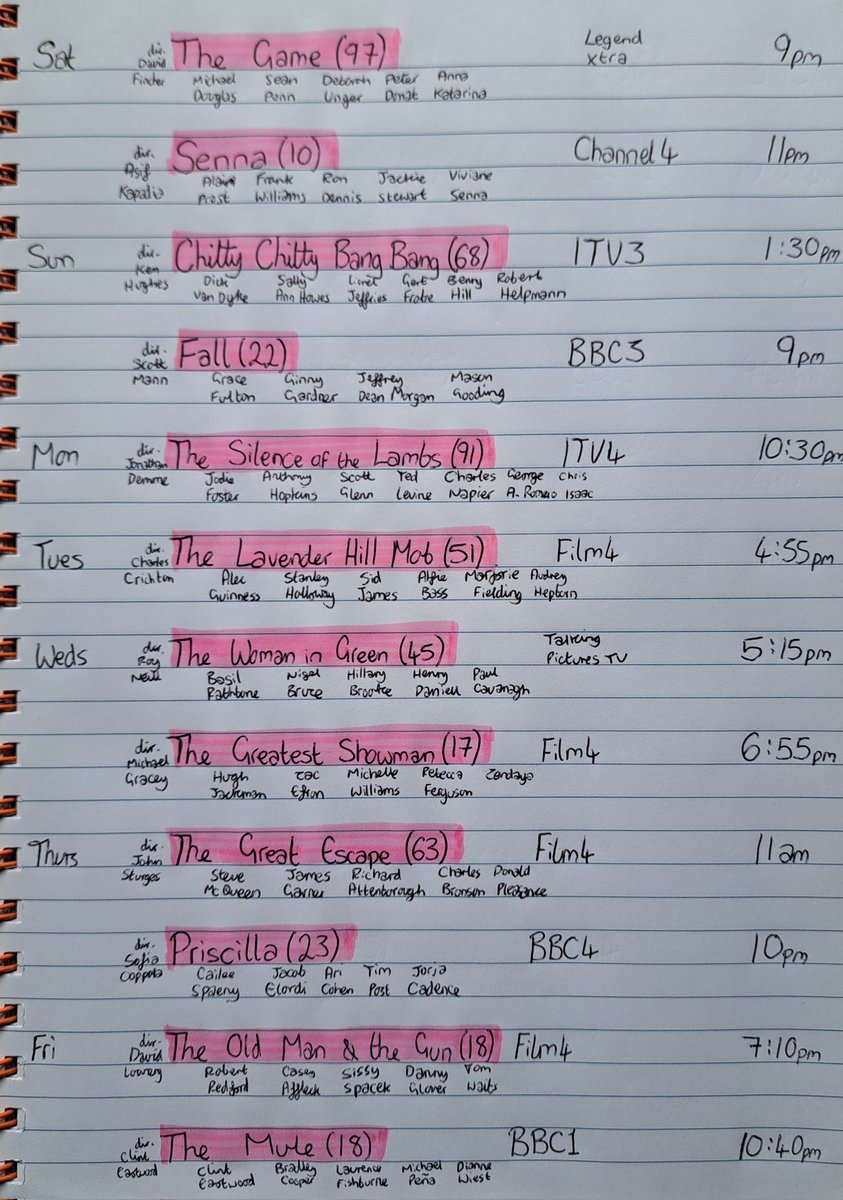 Sat dir. David Fincher The Game (97) Legend Xtra 9pm
Michael Sean Deborah Peter Anna
Douglas Penn Unger Donat Katarina
dir. Asif Kapadia Senna (10) Channel 4 11pm
Alain Frank Ron Jackie Viviane
Prost Williams Dennis Stewart Senna
Sun dir. Ken Hughes Chitty Chitty Bang Bang (68) ITV3 1:30pm
Dick Sally Lionel Gert Benny Robert
Van Dyke Ann Howes Jeffries Frobe Hill Helpmann
dir. Scott Mann Fall (22) BBC3 9pm
Grace Ginny Jeffrey Mason
Fulton Gardner Dean Morgan Gooding
Mon dir. Jonathan Demme The Silence of the Lambs (91) ITV4 10:30pm
Jodie Anthony Scott Ted Charles George Chris
Foster Hopkins Glenn Levine Napier A. Romero Isaac
Tues dir. Charles Crichton The Lavender Hill Mob (51) Film4 4:55pm
Alec Stanley Sid Alfie Marjorie Audrey
Guinness Holloway James Bass Fielding Hepburn
Weds dir. Roy Neill The Woman in Green (45) Talking Pictures TV 5:15pm
Basil Nigel Hillary Henry Paul
Rathbone Bruce Brooke Daniell Cavanagh
dir. Michael Gracey The Greatest Showman (17) Film4 6:55pm
Hugh Zac Michelle Rebecca Zendaya
Jackman Efron Williams Ferguson
Thurs dir. John Sturges The Great Escape (63) Film4 11am
Steve James Richard Charles Donald
McQueen Garner Attenborough Bronson Pleasance
dir. Sofia Coppola Priscilla (23) BBC4 10pm
Cailee Jacob Ari Tim Jorja
Spaeny Elordi Cohen Post Cadence
Fri dir. David Lowery The Old Man & the Gun (18) Film4 7:10pm
Robert Casey Sissy Danny Tom
Redford Affleck Spacek Glover Waits
dir. Clint Eastwood The Mule (18) BBC1 10:40pm
Clint Bradley Laurence Michael Dianne
Eastwood Cooper Fishburne Peña Wiest